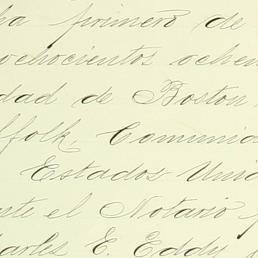 ha primero de
ochocientos ochen
dad de Boston
ffolk, Comunid
Estados Unid
nte el Notario p
harles E. Eddy